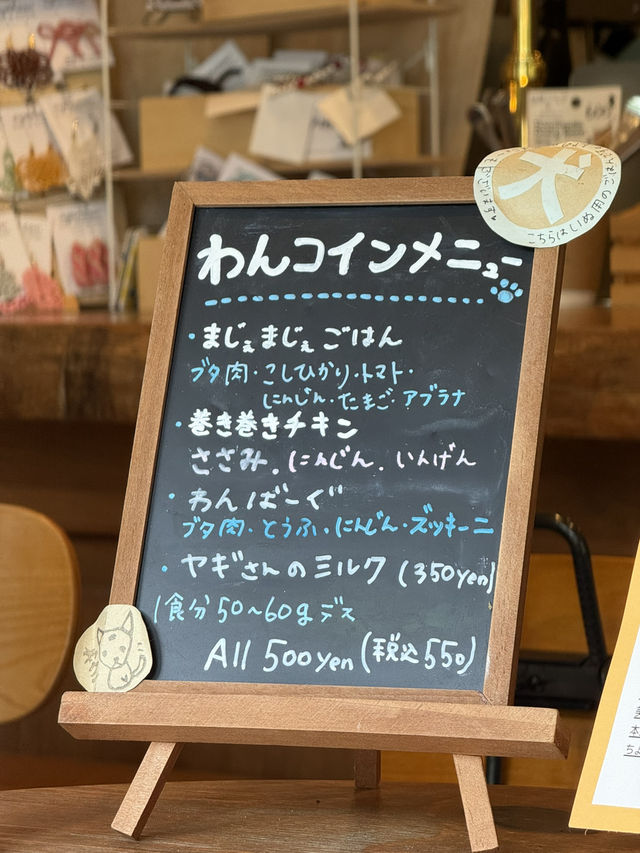 わんコインメニュー
・まじぇまじぇごはん
ブタ肉・こしひかり・トマト・
にんじん・たまご・アブラナ
・巻き巻きチキン
ささみ.にんじん.いんげん
・わんばーぐ
ブタ肉・とうふ・にんじん・ズッキーニ
・ヤギさんのミルク(350yen)
1食分50~60gデス
All 500yen(税込550)
犬
こちらはいぬ用のご